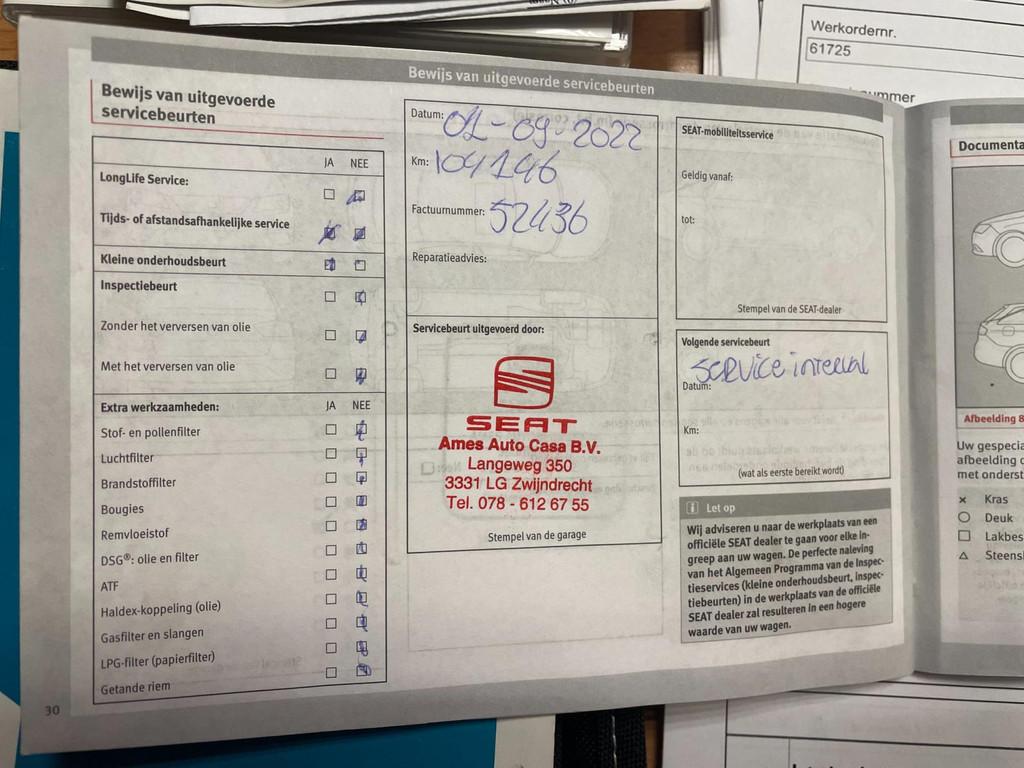 Werkordernr.
61725
Bewijs van uitgevoerde servicebeurten
Bewijs van uitgevoerde
servicebeurten
JA NEE
LongLife Service:
Tijds- of afstandsafhankelijke service
Kleine onderhoudsbeurt
Inspectiebeurt
Zonder het verversen van olie
Met het verversen van olie
Extra werkzaamheden: JA NEE
Stof- en pollenfilter
Luchtfilter
Brandstoffilter
Bougies
Remvloeistof
DSG®: olie en filter
ATF
Haldex-koppeling (olie)
Gasfilter en slangen
LPG-filter (papierfilter)
Getande riem
30
Datum: 01-09-2022
Km: 104146
Factuurnummer: 52436
Reparatieadvies:
Servicebeurt uitgevoerd door:
SEAT
Ames Auto Casa B.V.
Langeweg 350
3331 LG Zwijndrecht
Tel. 078 - 612 67 55
Stempel van de garage
SEAT-mobiliteitsservice
Geldig vanaf:
tot:
Stempel van de SEAT-dealer
Volgende servicebeurt
service interval
Datum:
Km:
(wat als eerste bereikt wordt)
i Let op
Wij adviseren u naar de werkplaats van een
officiële SEAT dealer te gaan voor elke in-
greep aan uw wagen. De perfecte naleving
van het Algemeen Programma van de Inspec-
tieservices (kleine onderhoudsbeurt, inspec-
tiebeurten) in de werkplaats van de officiële
SEAT dealer zal resulteren in een hogere
waarde van uw wagen.
Documenta
Afbeelding 8
Uw gespecia
afbeelding
met onderst
Kras
Deuk
Lakbes
Steens